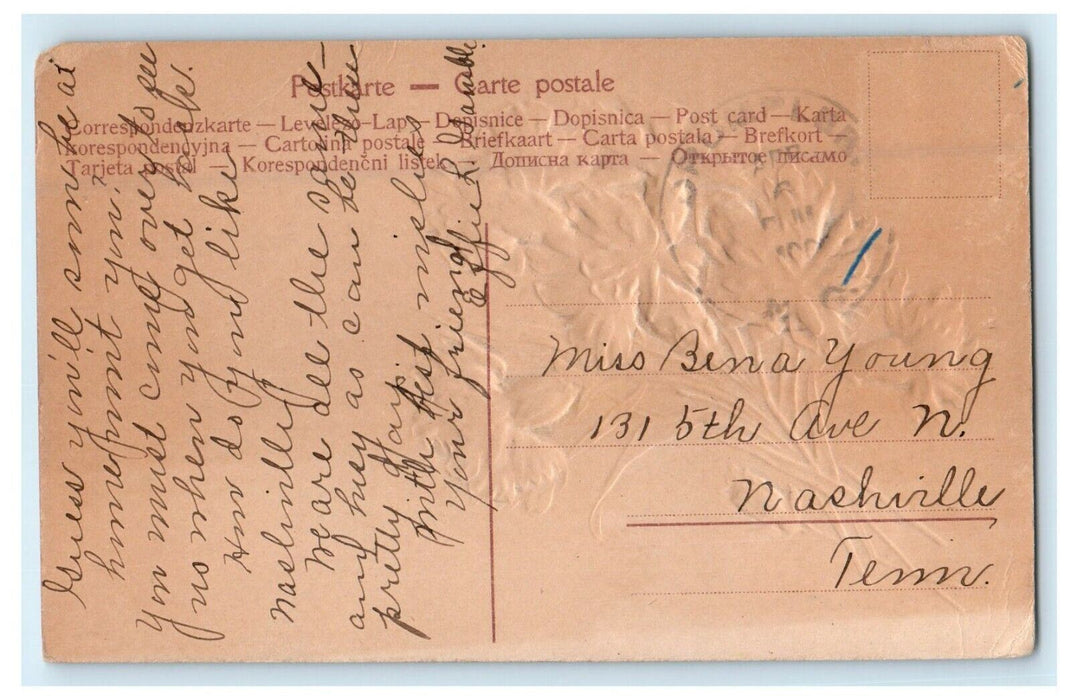 Postkarte — Carte postale
Correspondenzkarte — Levelező-Lap — Dopisnice — Dopisnica — Post card — Karta
korespondencyjna — Cartolina postale — Briefkaart — Carta postala — Brefkort —
Tarjeta postal — Korespondenčni listek — Дописна карта — Открытое писмо
Guess you'll soon be at
home, won't you?
You must come over to see
us when you get back.
How do you like
Nashville?
We are all the same —
and busy as can be. Mine
pretty
With best wishes
Your friend
Miss Bena Young
131 5th Ave N.
Nashville
Tenn.